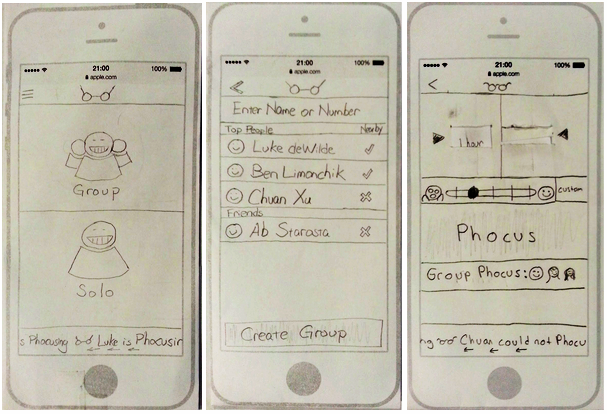 21:00
100%
apple.com
Group
Solo
s Phocusing Luke is Phocusin
21:00
100%
apple.com
Enter Name or Number
Top People Nearby
Luke deWilde
Ben Limonchik
Chuan Xu
Friends
Ab Starasta
Create Group
21:00
100%
apple.com
1 hour
custom
Phocus
Group Phocus:
ng Chuan could not Phocu